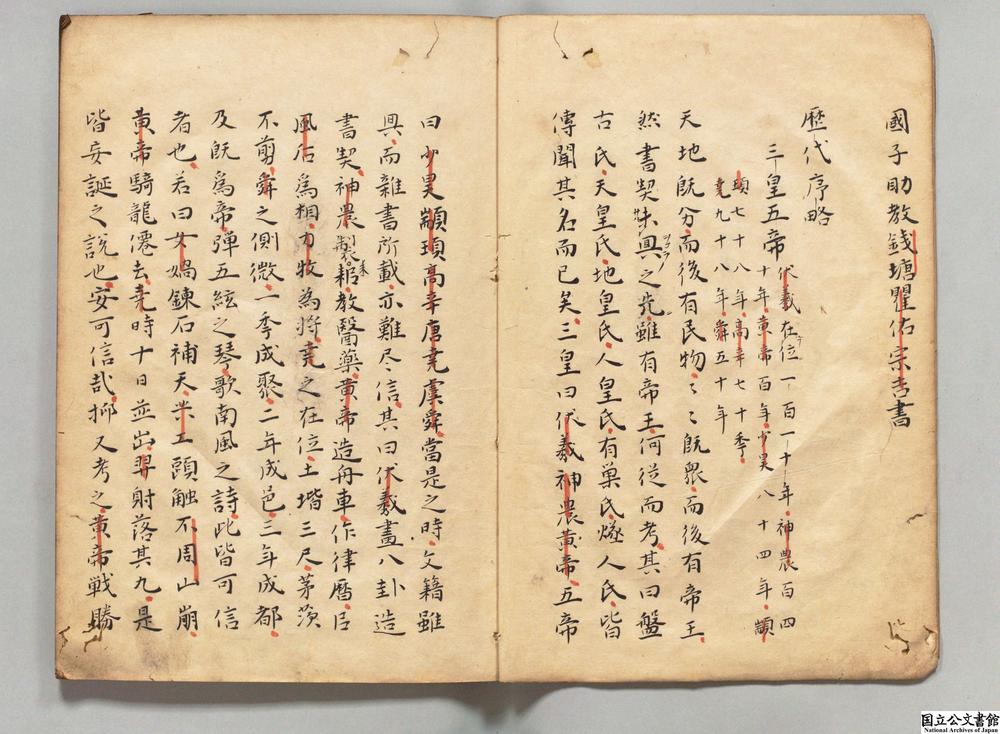 國子助教錢塘瞿佑宗吉書
歷代序略
三皇五帝
伏羲在位一百一十年神農百四
十年黄帝百年少昊八十四年顓
頊七十八年高辛七十季
堯九十八年舜五十年
天地既分而後有民物〻〻既衆而後有帝王
然書契未興之先雖有帝王何從而考其曰盤
古氏天皇氏地皇氏人皇氏有巢氏燧人氏皆
傳聞其名而已矣三皇曰伏羲神農黄帝五帝
曰少昊顓頊高辛唐堯虞舜當是之時文籍雖
具而雜書所載亦難尽信其曰伏羲畫八卦造
書契神農製耜教醫藥黄帝造舟車作律曆后
風后爲相力牧為将堯之在位土堦三尺茅茨
不剪舜之側微一季成聚二年成邑三年成都
及既爲帝彈五絃之琴歌南風之詩此皆可信
者也若曰女媧鍊石補天共工頭触不周山崩
黄帝騎龍僊去堯時十日並出羿射落其九是
皆妄誕之説也安可信哉抑又考之黄帝戦勝
国立公文書館
National Archives of Japan